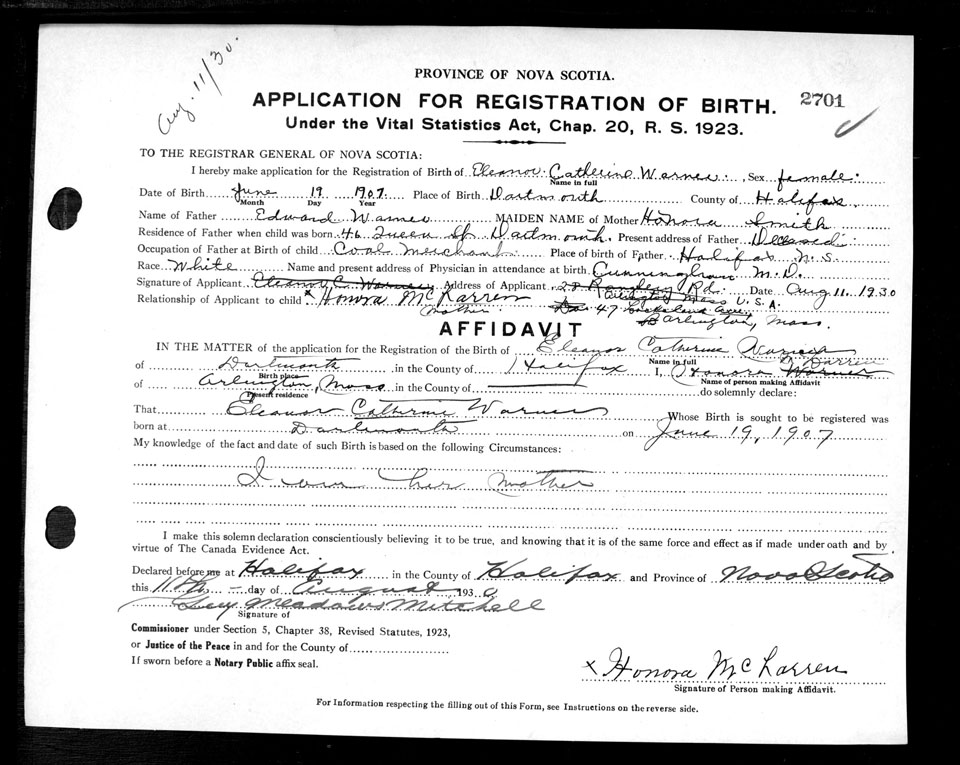 Aug. 11/30.
PROVINCE OF NOVA SCOTIA.
APPLICATION FOR REGISTRATION OF BIRTH. 2701
Under the Vital Statistics Act, Chap. 20, R. S. 1923.
TO THE REGISTRAR GENERAL OF NOVA SCOTIA:
I hereby make application for the Registration of Birth of Eleanor Catherine Warner, Sex female
Name in full
Date of Birth June 19 1907. Place of Birth Dartmouth County of Halifax.
Month Day Year
Name of Father Edward Warner MAIDEN NAME of Mother Honora Smith
Residence of Father when child was born 46 Queen St Dartmouth. Present address of Father Deceased
Occupation of Father at Birth of child Coal Merchant Place of birth of Father, Halifax N.S.
Race White Name and present address of Physician in attendance at birth Cunningham M.D.
Signature of Applicant Eleanor C. Warner Address of Applicant 28 Rd. Date Aug 11. 1930
Arlington Mass U.S.A.
Relationship of Applicant to child x Honora McLarren 47 Ave
mother Arlington, Mass.
AFFIDAVIT
IN THE MATTER of the application for the Registration of the Birth of Eleanor Catherine Warner
of Dartmouth in the County of Halifax I, Honora Warner
Birth place Name in full Name of person making Affidavit
of Arlington, Mass in the County of do solemnly declare:
Present residence
That Eleanor Catherine Warner Whose Birth is sought to be registered was
born at Dartmouth on June 19, 1907
My knowledge of the fact and date of such Birth is based on the following Circumstances:
I am her Mother
I make this solemn declaration conscientiously believing it to be true, and knowing that it is of the same force and effect as if made under oath and by
virtue of The Canada Evidence Act.
Declared before me at Halifax in the County of Halifax and Province of Nova Scotia
this 11th day of August, 1930
Guy Meadows Mitchell
Signature of
Commissioner under Section 5, Chapter 38, Revised Statutes, 1923,
or Justice of the Peace in and for the County of
If sworn before a Notary Public affix seal.
x Honora McLarren
Signature of Person making Affidavit.
For Information respecting the filling out of this Form, see Instructions on the reverse side.